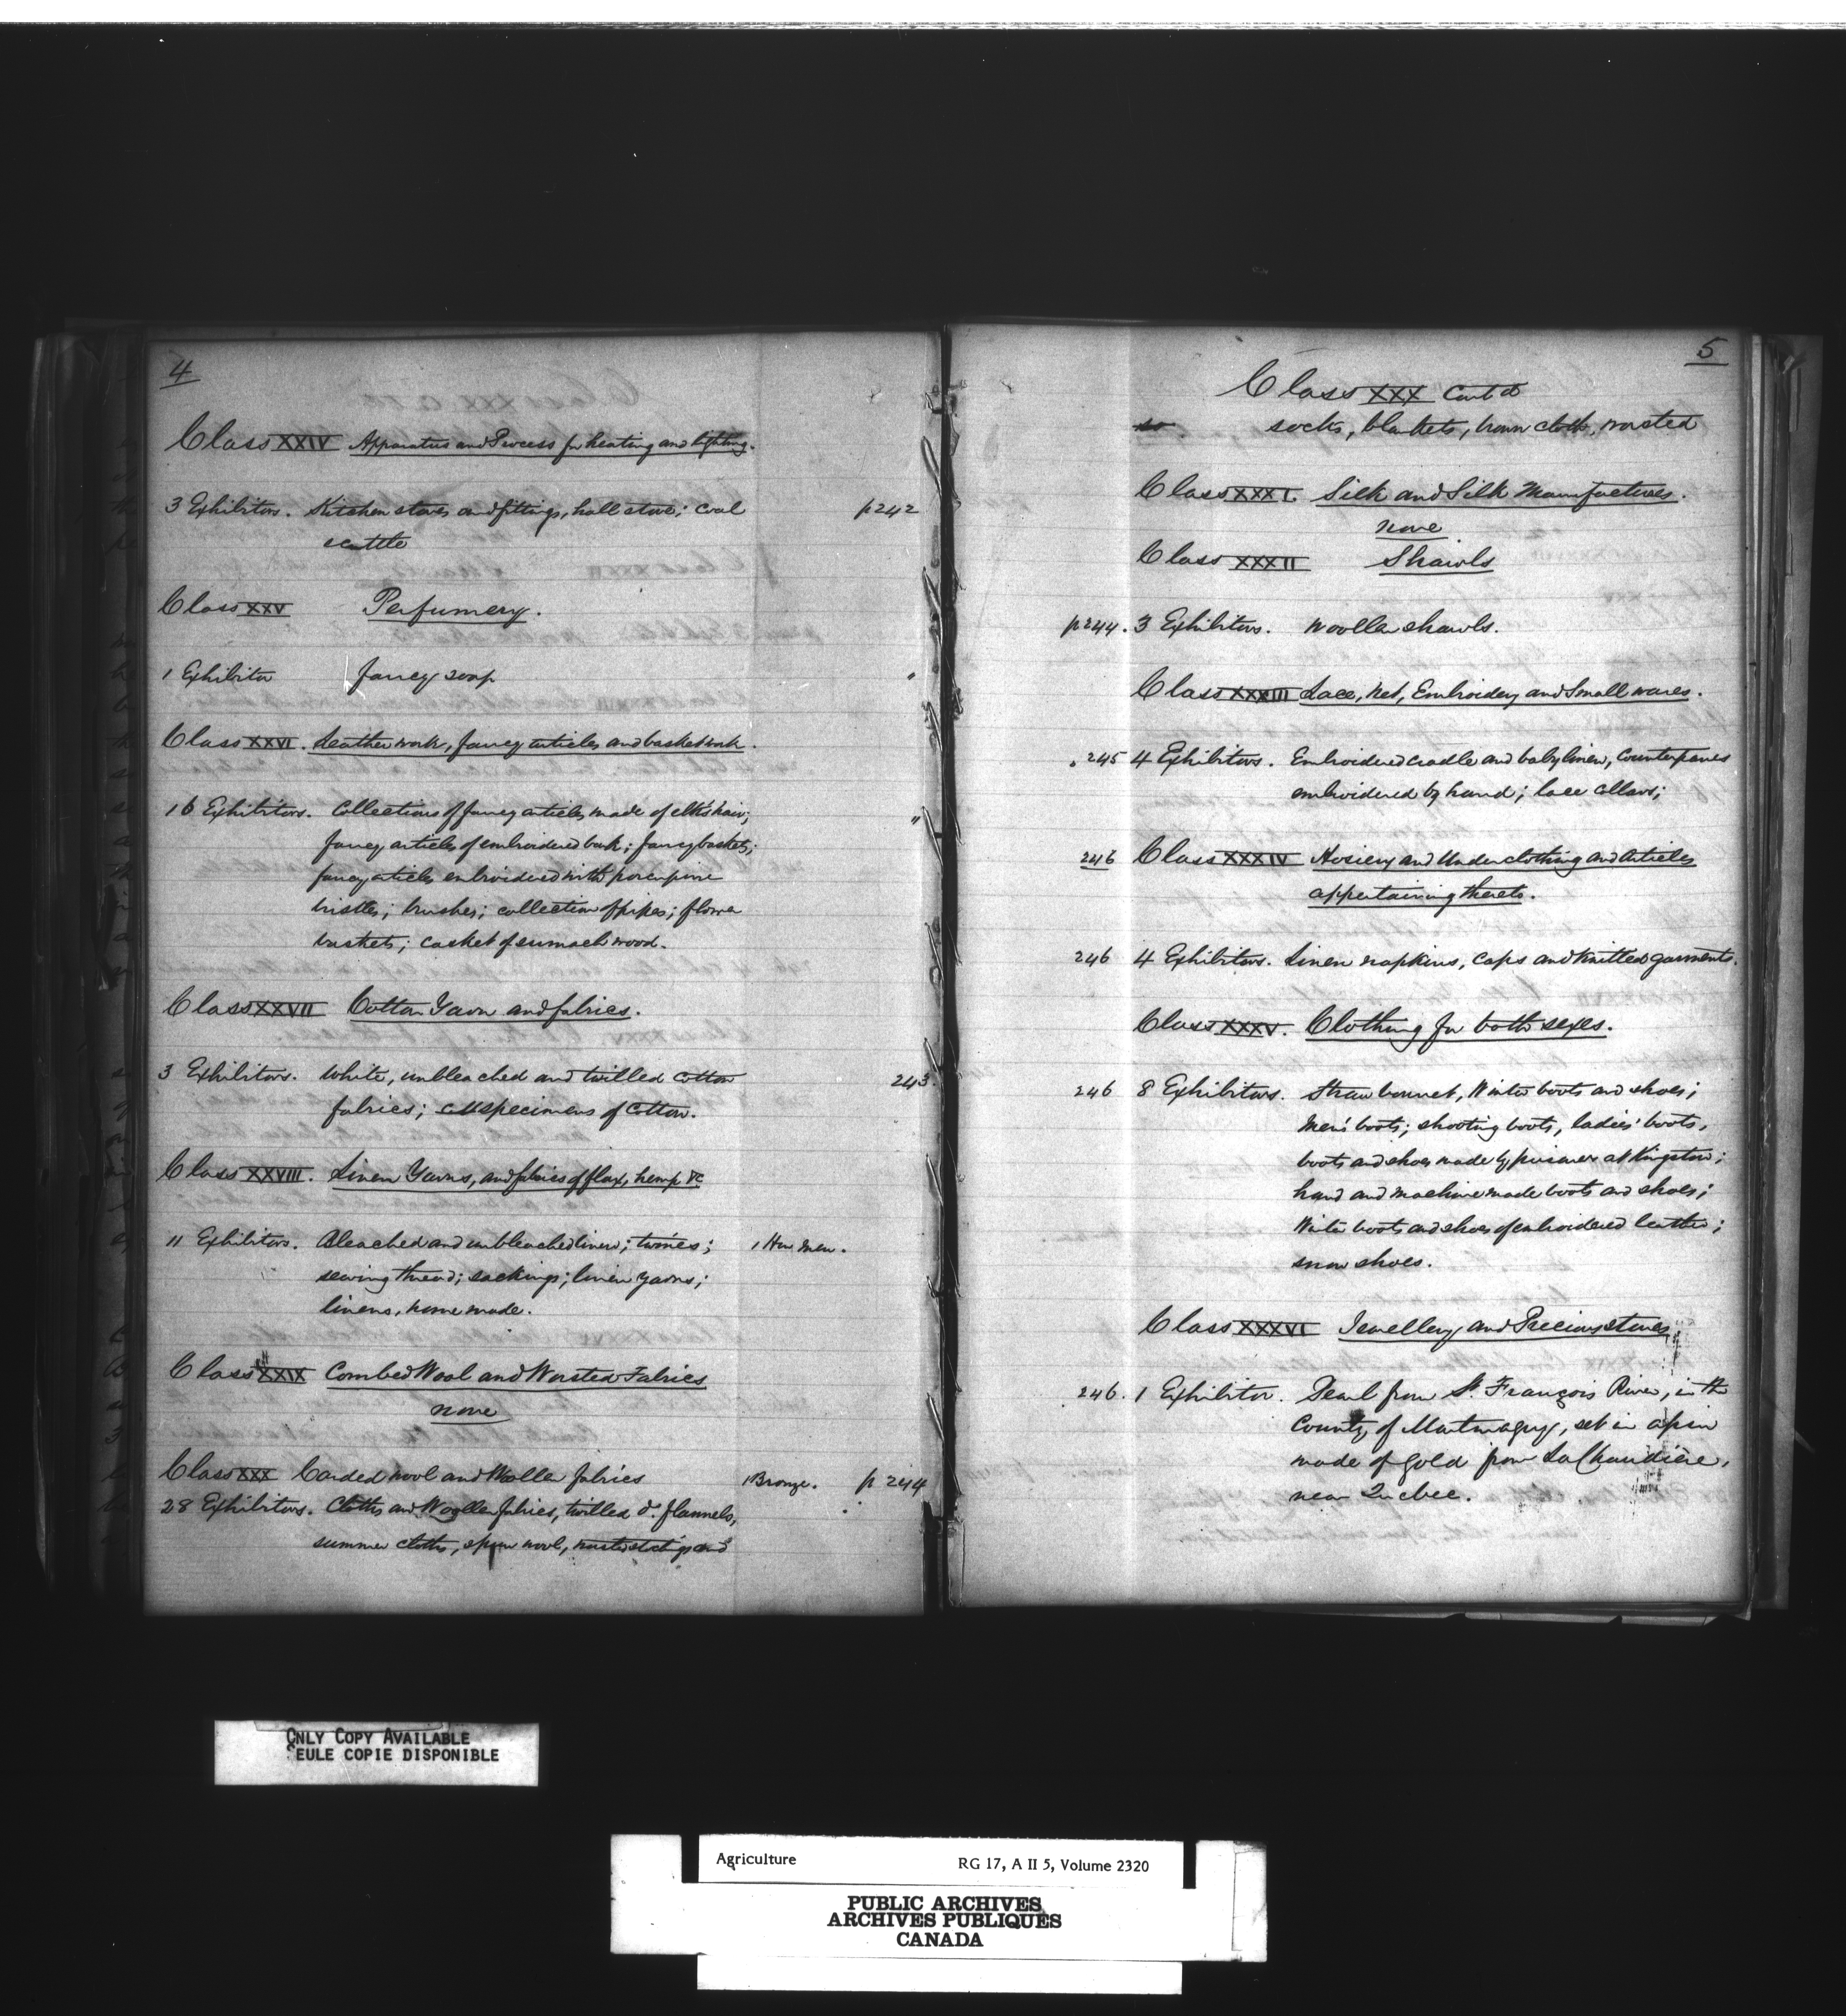 4
Class XXIV Apparatus and Process for heating and lighting.
3 Exhibitors. Kitchen stoves and fittings, hall stove; coal p 242
scuttle
Class XXV Perfumery.
1 Exhibitor fancy soap "
Class XXVI. Leather work, fancy articles and basketwork.
16 Exhibitors. Collections of fancy articles made of elk's hair; "
fancy articles of embroidered bark; fancy baskets;
fancy articles embroidered with porcupine
bristles; brushes; collection of pipes; flower
baskets; casket of sumach wood.
Class XXVII Cotton Yarn and fabrics.
3 Exhibitors. White, unbleached and twilled cotton 243
fabrics; specimens of Cotton.
Class XXVIII. Linen Yarns, and fabrics of flax, hemp &c
11 Exhibitors. Bleached and unbleached linens; twines; 1 Hon Men.
sewing thread; sackings; linen yarns;
linens, home made.
Class XXIX Combed Wool and Worsted Fabrics
none
Class XXX Carded wool and Woollen fabrics 1 Bronze. p 244
28 Exhibitors. Cloths and Woollen fabrics, twilled do. flannels,
summer cloths, spun wool, and
5
Class XXX Cont'd
socks, blankets, brown cloth, worsted
Class XXXI. Silk and Silk Manufactures.
none
Class XXXII Shawls
p 244. 3 Exhibitors. Woollen shawls.
Class XXXIII Lace, Net, Embroidery and Small wares.
" 245 4 Exhibitors. Embroidered cradle and baby linen, counterpanes
embroidered by hand; lace collars;
246 Class XXXIV Hosiery and Underclothing and Articles
appertaining thereto.
246 4 Exhibitors. Linen napkins, caps and knitted garments.
Class XXXV. Clothing for both sexes.
246 8 Exhibitors. Straw bonnet, Winter boots and shoes;
Men's boots; shooting boots, ladies' boots,
boots and shoes made by prisoners at Kingston;
hand and machine made boots and shoes;
Winter boots and shoes of embroidered leather;
snow shoes.
Class XXXVI Jewellery and Precious stones
246. 1 Exhibitor. Pearl from St. François River, in the
County of Montmagny, set in a pin
made of gold from La Chaudière,
near Quebec.
ONLY COPY AVAILABLE
SEULE COPIE DISPONIBLE
Agriculture RG 17, A II 5, Volume 2320
PUBLIC ARCHIVES
ARCHIVES PUBLIQUES
CANADA